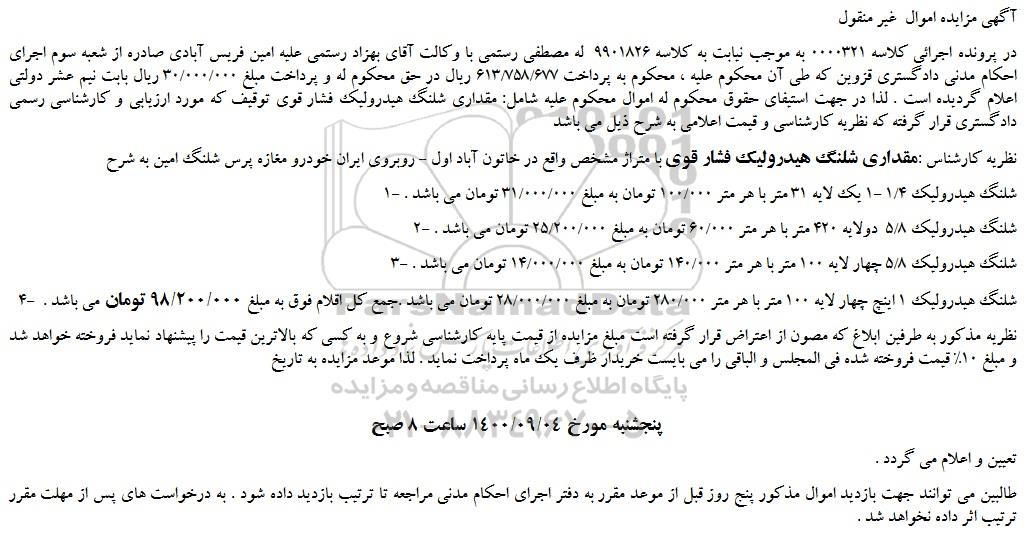 آگهی مزایده اموال غیر منقول
در پرونده اجرائی کلاسه ۰۰۰۰۳۲۱ به موجب نیابت به کلاسه ۹۹۰۱۸۲۶ له مصطفی رستمی با وکالت آقای بهزاد رستمی علیه امین فریس آبادی صادره از شعبه سوم اجرای
احکام مدنی دادگستری قزوین که طی آن محکوم علیه ، محکوم به پرداخت ۶۱۳/۷۵۸/۶۷۷ ریال در حق محکوم له و پرداخت مبلغ ۳۰/۰۰۰/۰۰۰ ریال بابت نیم عشر دولتی
اعلام گردیده است . لذا در جهت استیفای حقوق محکوم له اموال محکوم علیه شامل: مقداری شلنگ هیدرولیک فشار قوی توقیف که مورد ارزیابی و کارشناسی رسمی
دادگستری قرار گرفته که نظریه کارشناسی و قیمت اعلامی به شرح ذیل می باشد
نظریه کارشناس :مقداری شلنگ هیدرولیک فشار قوی با متراژ مشخص واقع در خاتون آباد اول – روبروی ایران خودرو مغازه پرس شلنگ امین به شرح
شلنگ هیدرولیک ۱/۴ -۱ یک لایه ۳۱ متر با هر متر ۱۰۰/۰۰۰ تومان به مبلغ ۳۱/۰۰۰/۰۰۰ تومان می باشد . -۱
شلنگ هیدرولیک ۵/۸ دولایه ۴۲۰ متر با هر متر ۶۰/۰۰۰ تومان به مبلغ ۲۵/۲۰۰/۰۰۰ تومان می باشد . -۲
شلنگ هیدرولیک ۵/۸ چهار لایه ۱۰۰ متر با هر متر ۱۴۰/۰۰۰ تومان به مبلغ ۱۴/۰۰۰/۰۰۰ تومان می باشد . -۳
شلنگ هیدرولیک ۱ اینچ چهار لایه ۱۰۰ متر با هر متر ۲۸۰/۰۰۰ تومان به مبلغ ۲۸/۰۰۰/۰۰۰ تومان می باشد .جمع کل اقلام فوق به مبلغ ۹۸/۲۰۰/۰۰۰ تومان می باشد . -۴
نظریه مذکور به طرفین ابلاغ که مصون از اعتراض قرار گرفته است مبلغ مزایده از قیمت پایه کارشناسی شروع و به کسی که بالاترین قیمت را پیشنهاد نماید فروخته خواهد شد
و مبلغ ۱۰٪ قیمت فروخته شده فی المجلس و الباقی را می بایست خریدار ظرف یک ماه پرداخت نماید . لذا موعد مزایده به تاریخ
پایگاه اطلاع رسانی مناقصه و مزایده
پنجشنبه مورخ ۱۴۰۰/۰۹/۰۴ ساعت ۸ صبح
تعیین و اعلام می گردد .
طالبین می توانند جهت بازدید اموال مذکور پنج روز قبل از موعد مقرر به دفتر اجرای احکام مدنی مراجعه تا ترتیب بازدید داده شود . به درخواست های پس از مهلت مقرر
ترتیب اثر داده نخواهد شد .